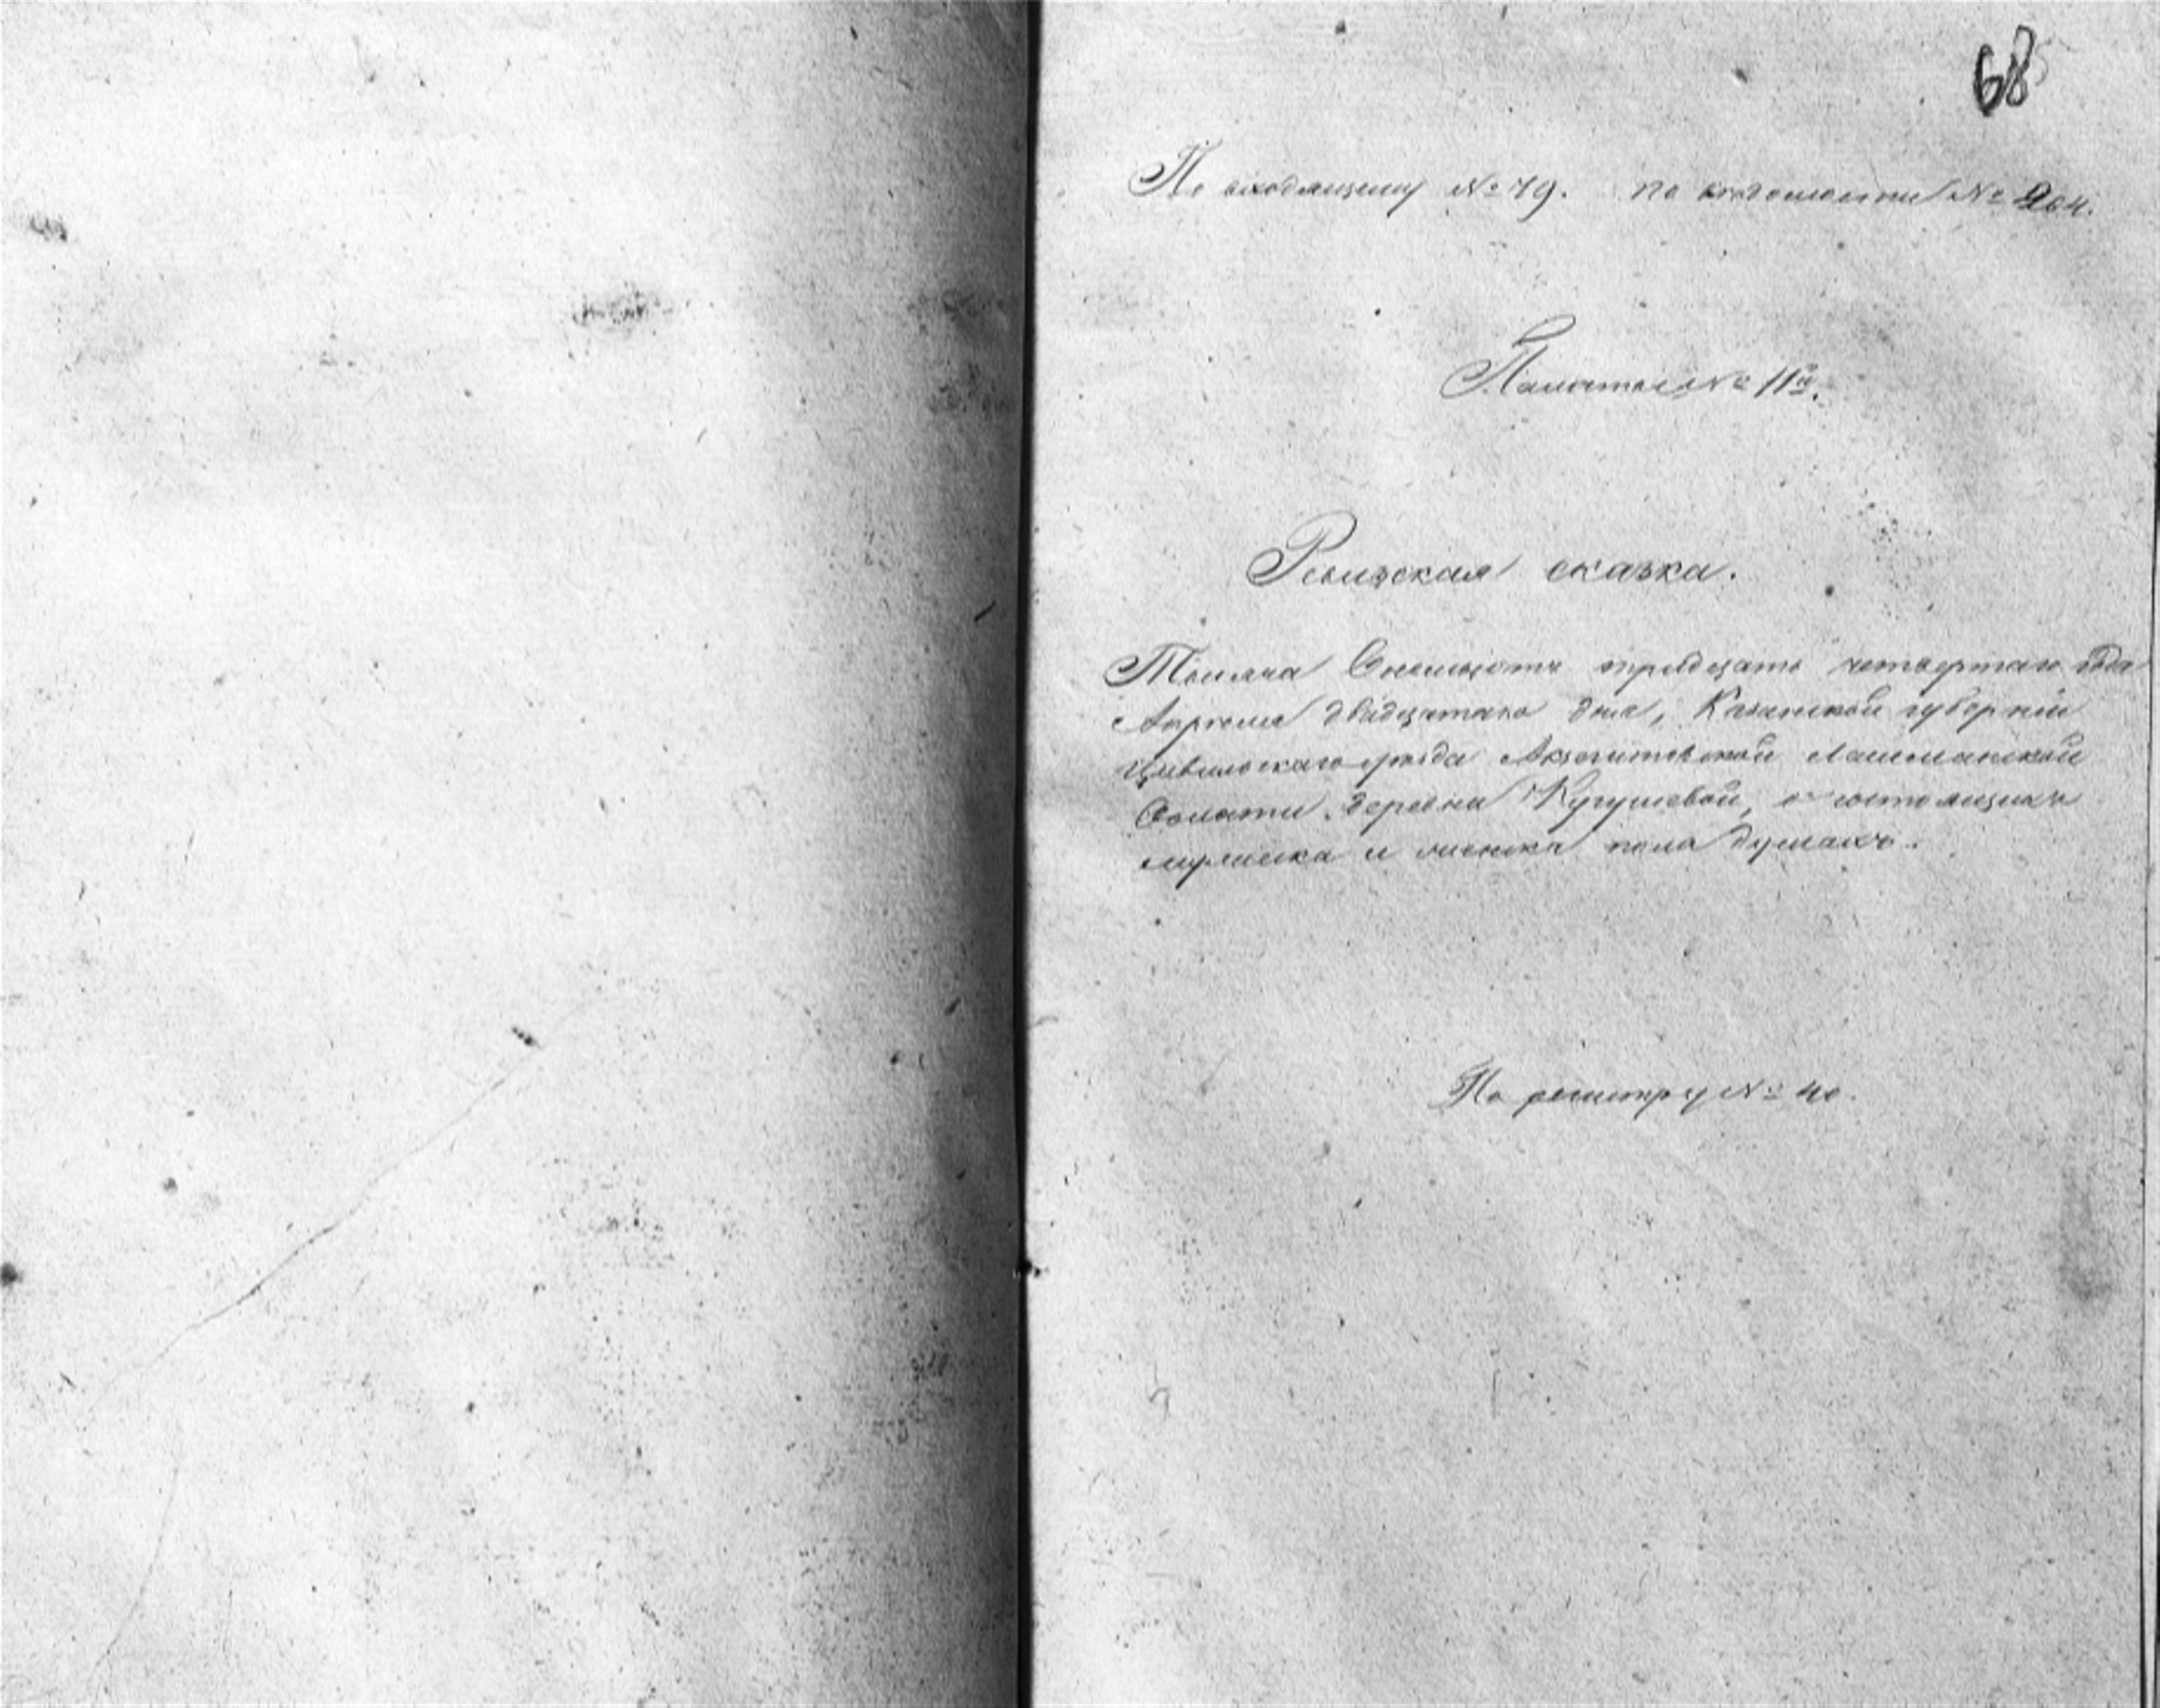 68
По входящему № 79. по ведомости № 204.
Палаты № 11й.
Ревизская сказка.
Тысяча Осемьсотъ тридцать четвертаго года
Апреля двадцатаго дня, Казанской губернiи
Цивильскаго уезда Акзегитовской Лашманской
Волости деревни Кугушевой, о состоящихъ
мужеска и женска пола душахъ.
По регистру № 40.